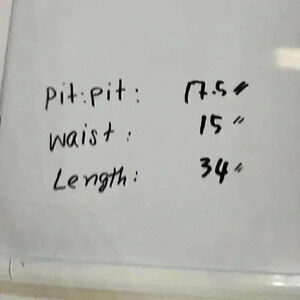 Pit:pit: 17.5"
waist: 15"
Length: 34"